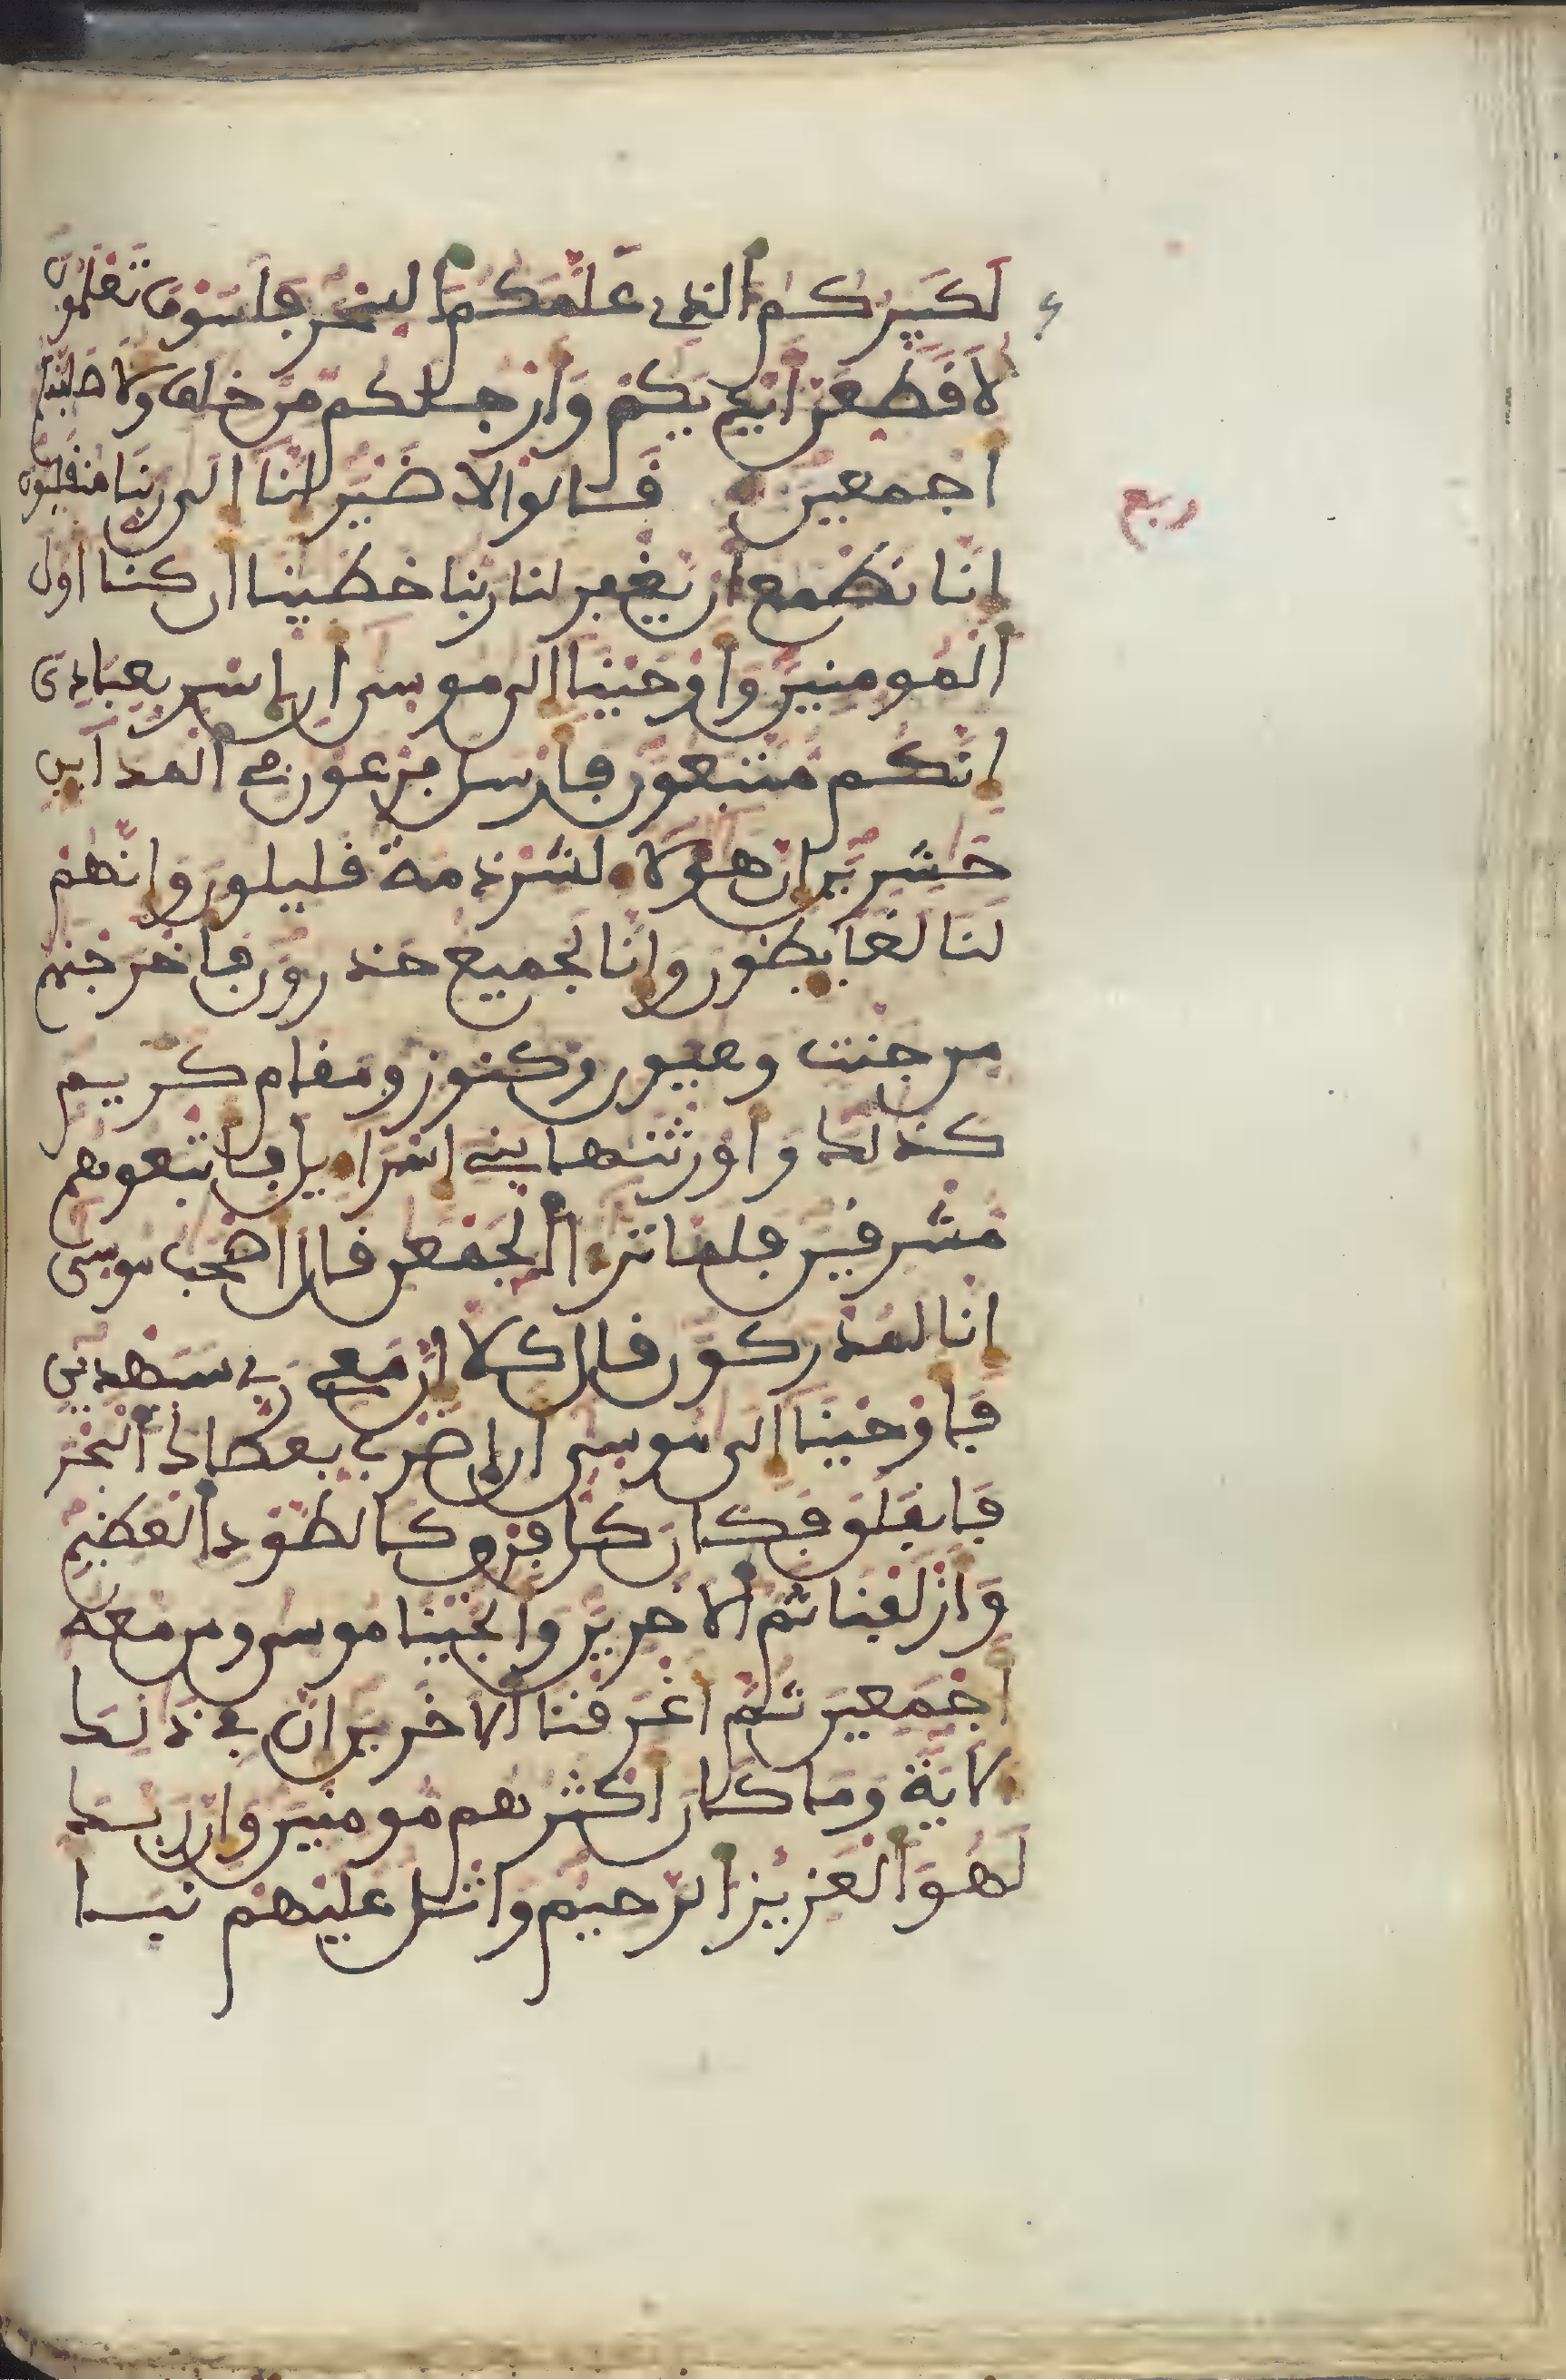 لَكَبِيرُكُمُ الذِى عَلَّمَكُمُ السِّحْرَ فَلَسَوْفَ تَعْلَمُونَ
لَأُقَطِّعَنَّ أَيْدِيَكُمْ وَأَرْجُلَكُم مِّنْ خِلَٰفٍ وَلَأُصَلِّبَنَّكُمْ
أَجْمَعِينَ قَالُوا لَا ضَيْرَ إِنَّا إِلَىٰ رَبِّنَا مُنقَلِبُونَ
ربع
إِنَّا نَطْمَعُ أَنْ يَّغْفِرَ لَنَا رَبُّنَا خَطَٰيَٰنَا أَن كُنَّا أَوَّلَ
الْمُومِنِينَ وَأَوْحَيْنَا إِلَىٰ مُوسَىٰ أَنِ اسْرِ بِعِبَادِىَ
إِنَّكُم مُّتَّبَعُونَ فَأَرْسَلَ فِرْعَوْنُ فِى الْمَدَآئِنِ
حَٰشِرِينَ إِنَّ هَٰؤُلَاءِ لَشِرْذِمَةٌ قَلِيلُونَ وَإِنَّهُمْ
لَنَا لَغَآئِظُونَ وَإِنَّا لَجَمِيعٌ حَذِرُونَ فَأَخْرَجْنَٰهُم
مِّن جَنَّٰتٍ وَعُيُونٍ وَكُنُوزٍ وَمَقَامٍ كَرِيمٍ
كَذَٰلِكَ وَأَوْرَثْنَٰهَا بَنِى إِسْرَآءِيلَ فَأَتْبَعُوهُم
مُّشْرِقِينَ فَلَمَّا تَرَٰٓءَا الْجَمْعَٰنِ قَالَ أَصْحَٰبُ مُوسَىٰ
إِنَّا لَمُدْرَكُونَ قَالَ كَلَّا إِنَّ مَعِى رَبِّى سَيَهْدِينِ
فَأَوْحَيْنَا إِلَىٰ مُوسَىٰ أَنِ اضْرِب بِّعَصَاكَ الْبَحْرَ
فَانفَلَقَ فَكَانَ كُلُّ فِرْقٍ كَالطَّوْدِ الْعَظِيمِ
وَأَزْلَفْنَا ثَمَّ الْأَخَرِينَ وَأَنجَيْنَا مُوسَىٰ وَمَن مَّعَهُ
أَجْمَعِينَ ثُمَّ أَغْرَقْنَا الْأَخَرِينَ إِنَّ فِى ذَٰلِكَ
لَأَيَةً وَمَا كَانَ أَكْثَرُهُم مُّومِنِينَ وَإِنَّ رَبَّكَ
لَهُوَ الْعَزِيزُ الرَّحِيمُ وَاتْلُ عَلَيْهِمْ نَبَأَ